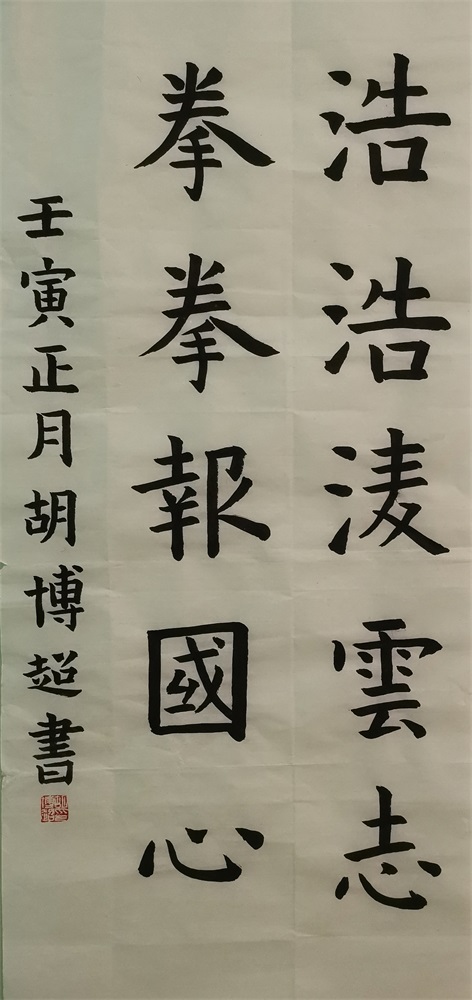 浩浩淩雲志
拳拳報國心
壬寅正月胡博超書